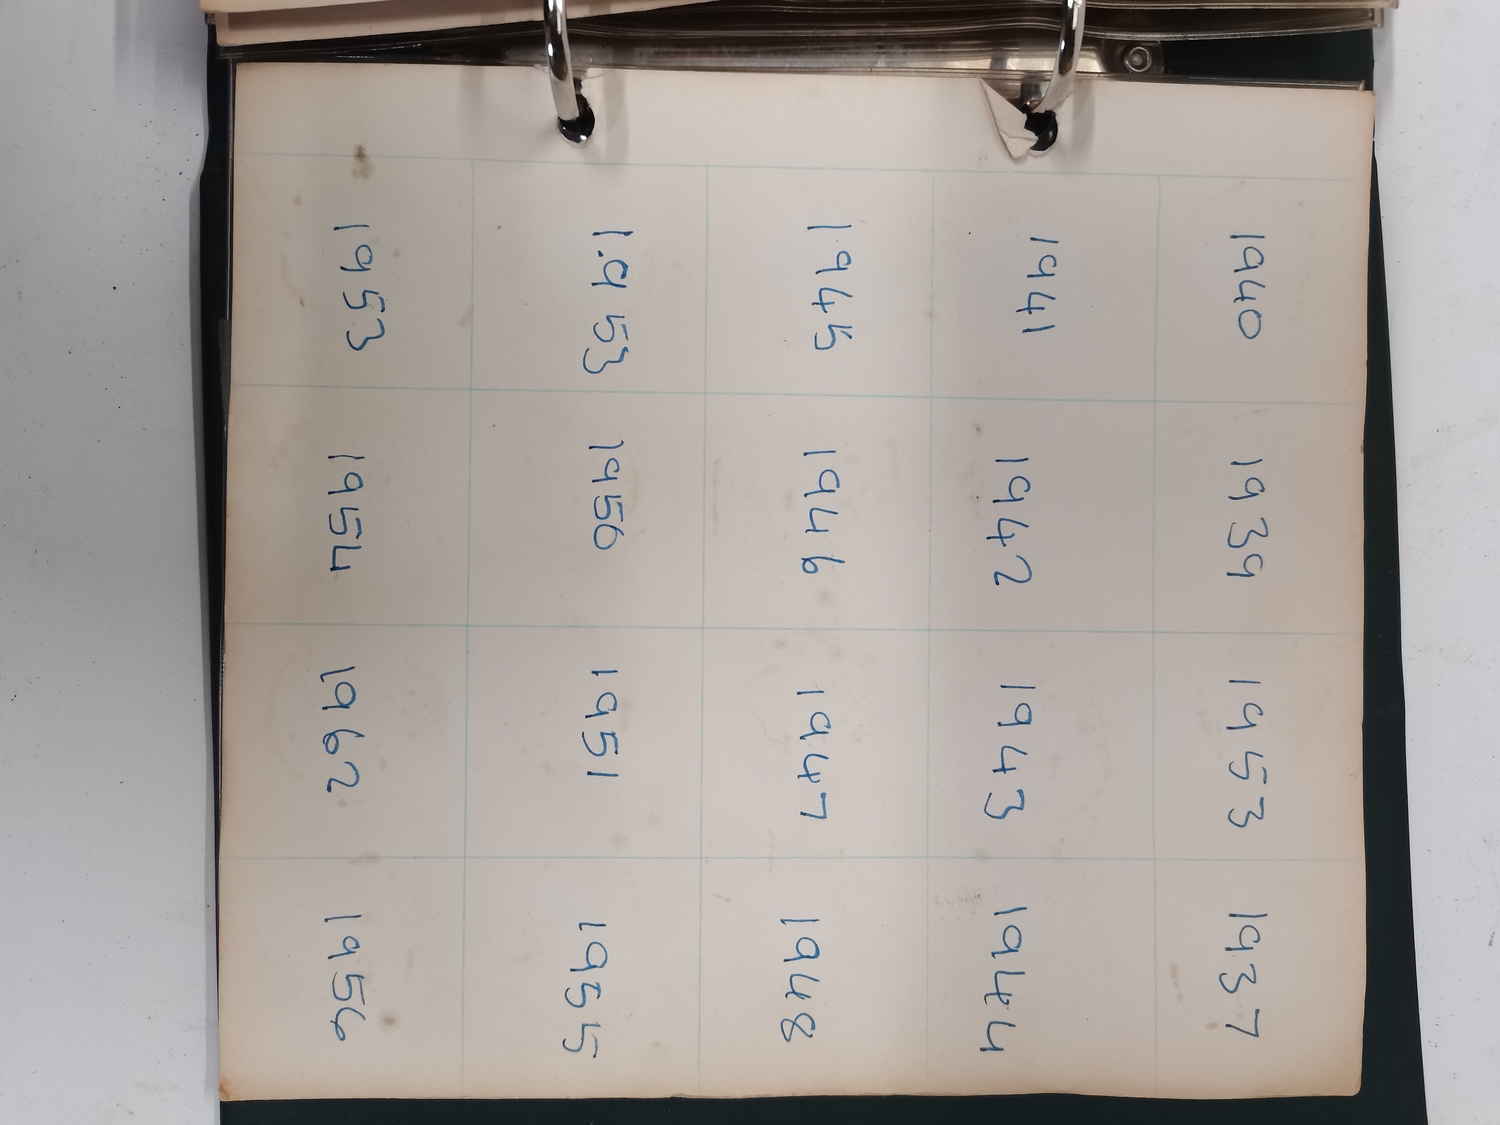 1940 1939 1953 1937
1941 1942 1943 1944
1945 1946 1947 1948
1.953 1950 1951 1955
1953 1954 1962 1956